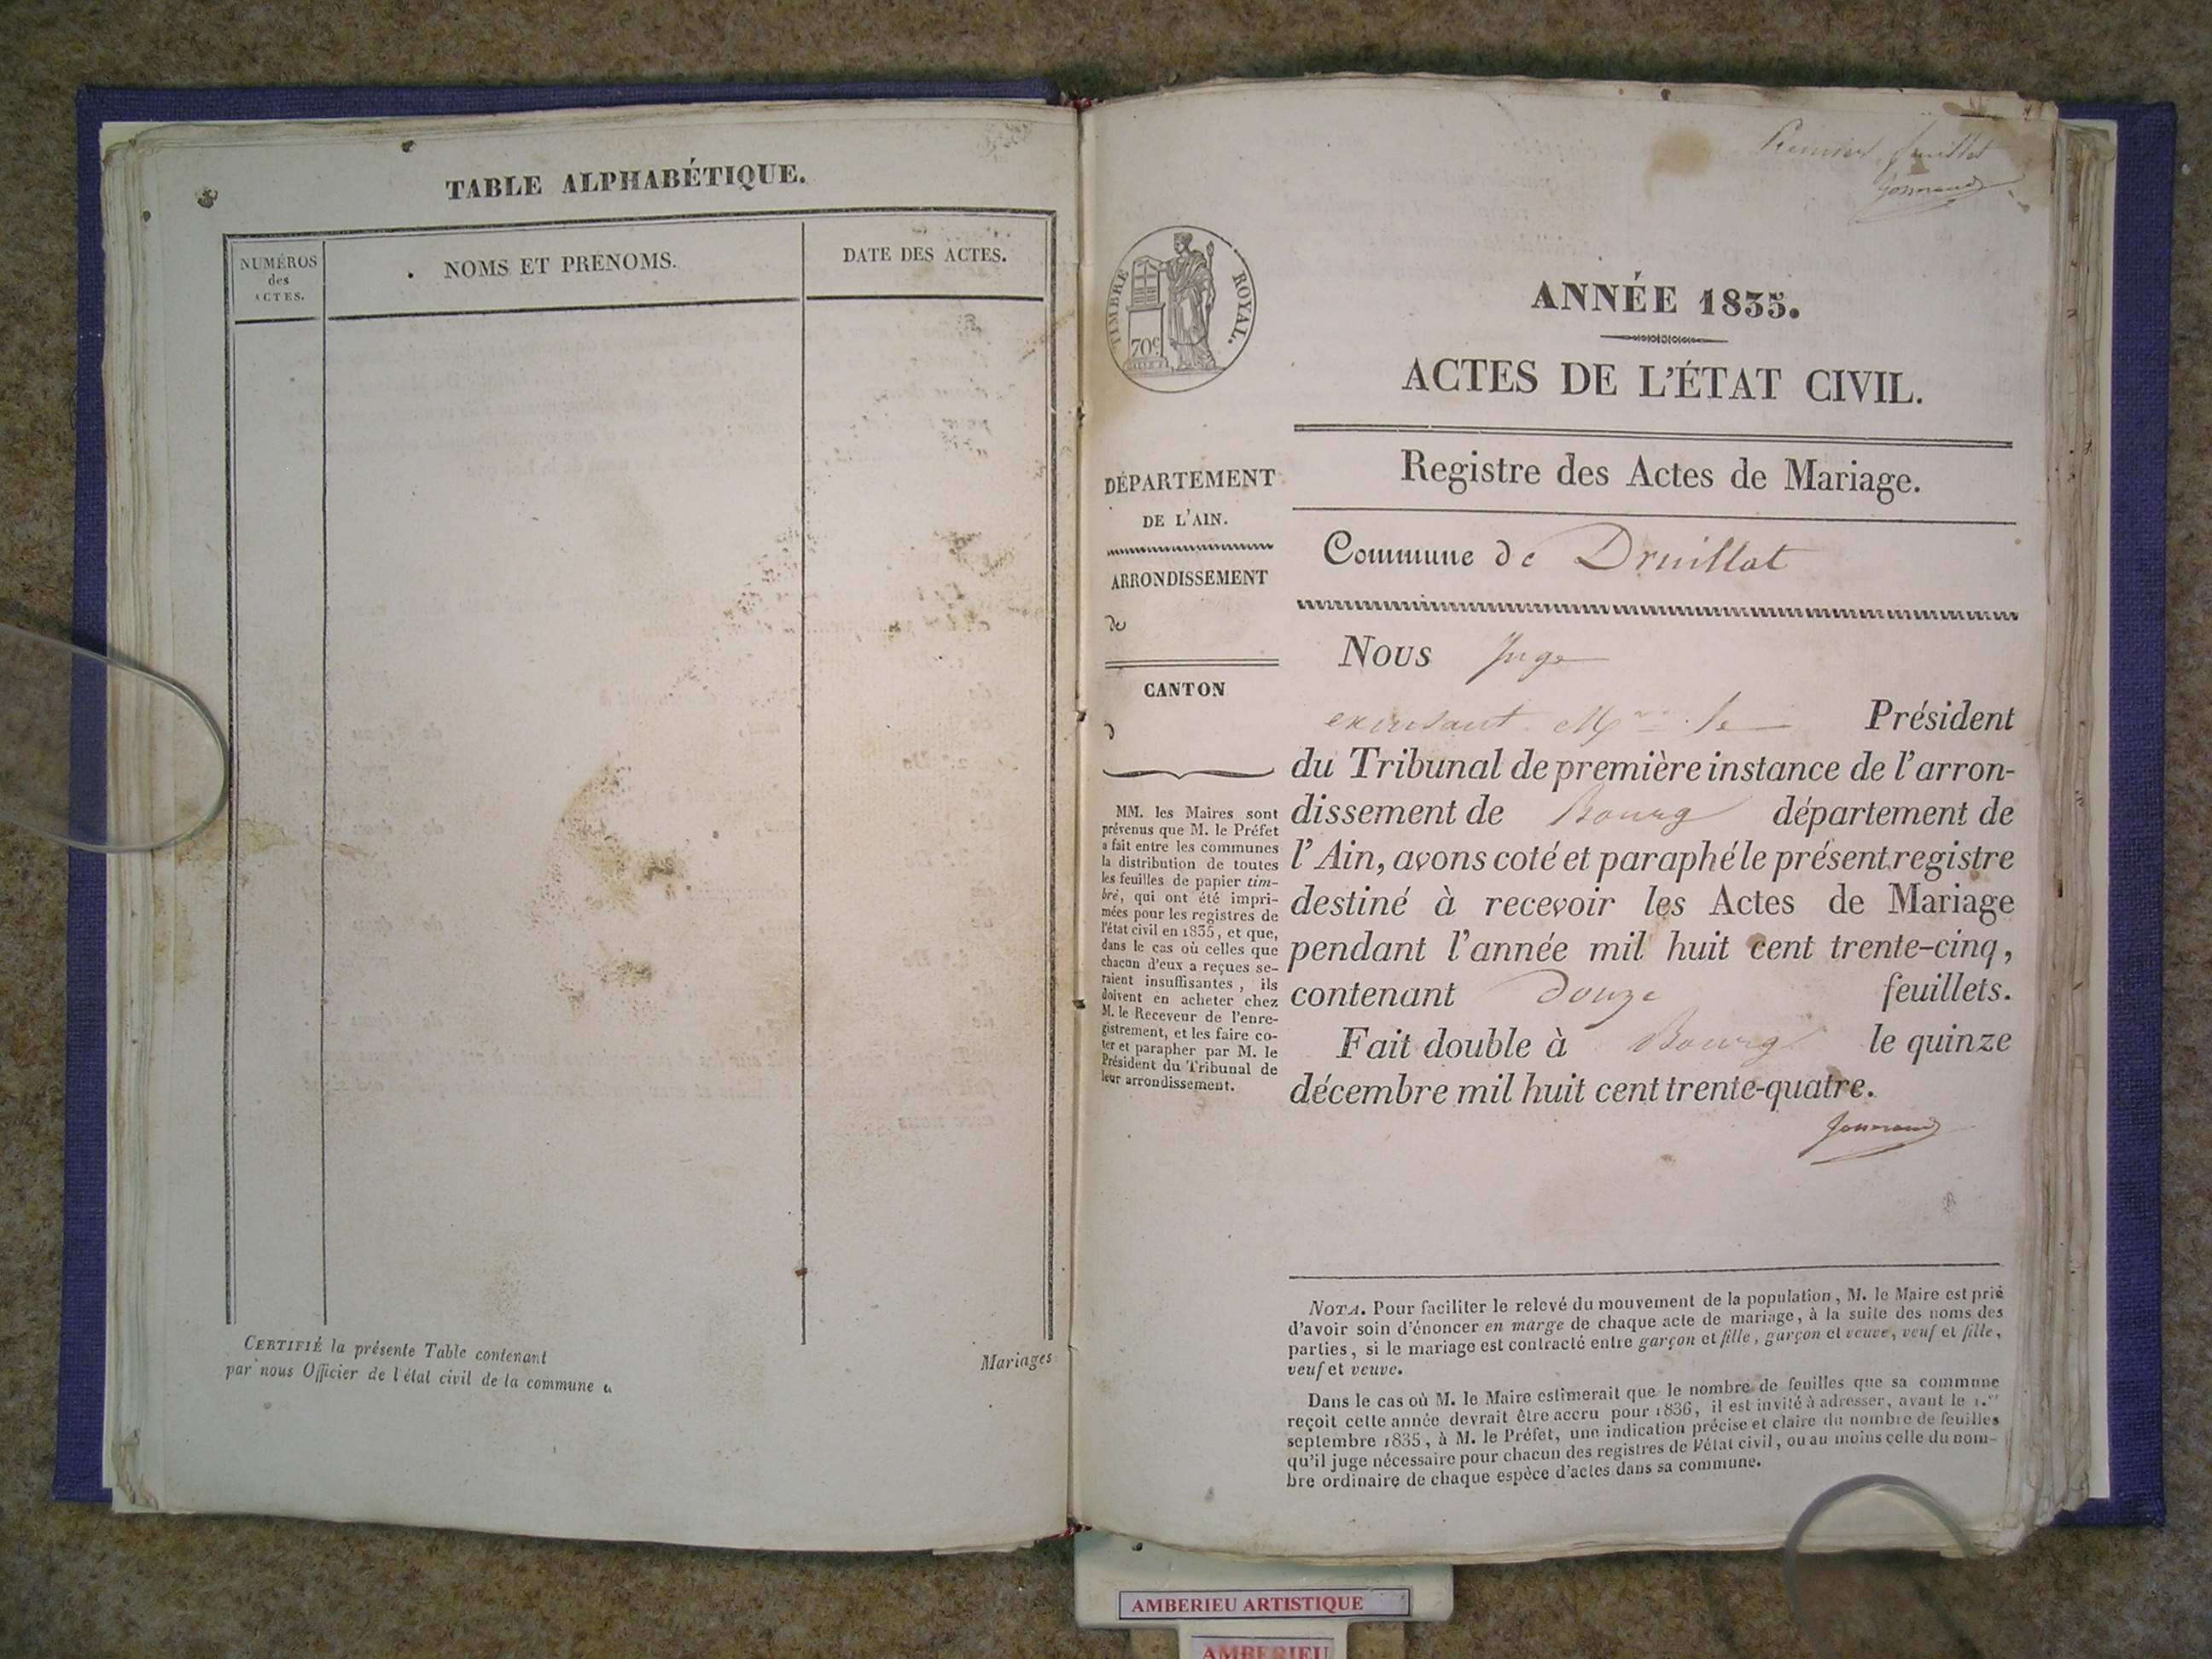 TABLE ALPHABÉTIQUE.
NUMÉROS
des
ACTES.
NOMS ET PRÉNOMS.
DATE DES ACTES.
CERTIFIÉ la présente Table contenant
par nous Officier de l'état civil de la commune
Mariages
Premier feuillet
TIMBRE ROYAL.
70c
ANNÉE 1835.
ACTES DE L'ÉTAT CIVIL.
Registre des Actes de Mariage.
DÉPARTEMENT
DE L'AIN.
ARRONDISSEMENT
de
CANTON
d
MM. les Maires sont
prévenus que M. le Préfet
a fait entre les communes
la distribution de toutes
les feuilles de papier tim-
bré, qui ont été impri-
mées pour les registres de
l'état civil en 1835, et que,
dans le cas où celles que
chacun d'eux a reçues se-
raient insuffisantes, ils
doivent en acheter chez
M. le Receveur de l'enre-
gistrement, et les faire co-
ter et parapher par M. le
Président du Tribunal de
leur arrondissement.
Commune de Druillat
Nous Juge
Mr le Président
du Tribunal de première instance de l'arron-
dissement de Bourg département de
l'Ain, avons coté et paraphé le présent registre
destiné à recevoir les Actes de Mariage
pendant l'année mil huit cent trente-cinq,
contenant douze feuillets.
Fait double à Bourg le quinze
décembre mil huit cent trente-quatre.
NOTA. Pour faciliter le relevé du mouvement de la population, M. le Maire est prié
d'avoir soin d'énoncer en marge de chaque acte de mariage, à la suite des noms des
parties, si le mariage est contracté entre garçon et fille, garçon et veuve, veuf et fille,
veuf et veuve.
Dans le cas où M. le Maire estimerait que le nombre de feuilles que sa commune
reçoit cette année devrait être accru pour 1836, il est invité à adresser, avant le 1.er
septembre 1835, à M. le Préfet, une indication précise et claire du nombre de feuilles
qu'il juge nécessaire pour chacun des registres de l'état civil, ou au moins celle du nom-
bre ordinaire de chaque espèce d'actes dans sa commune.
AMBERIEU ARTISTIQUE
AMBERIEU